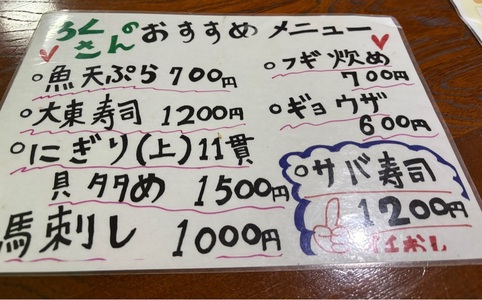 ろくさんのおすすめメニュー
○魚天ぷら 700円
○大東寿司 1200円
○にぎり(上)11貫
1500円
貝タタめ
馬刺し 1000円
○フギ炒め
700円
○ギョウザ
600円
○サバ寿司
1200円